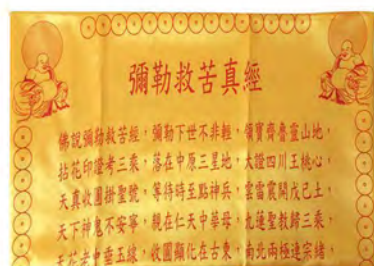 彌勒救苦真經
佛說彌勒救苦經，彌勒下世不非輕，領寶齊魯靈山地，
拈花印證考三乘，落在中原三星地，大證四川王桃心，
天真收圓掛聖號，等待時至點神兵，雲雷震開戊己土，
天下神鬼不安寧，親在仁天中華母，九蓮聖教歸三乘，
天花老母垂玉線，收圓顯化在古東，南北兩極連宗緒，